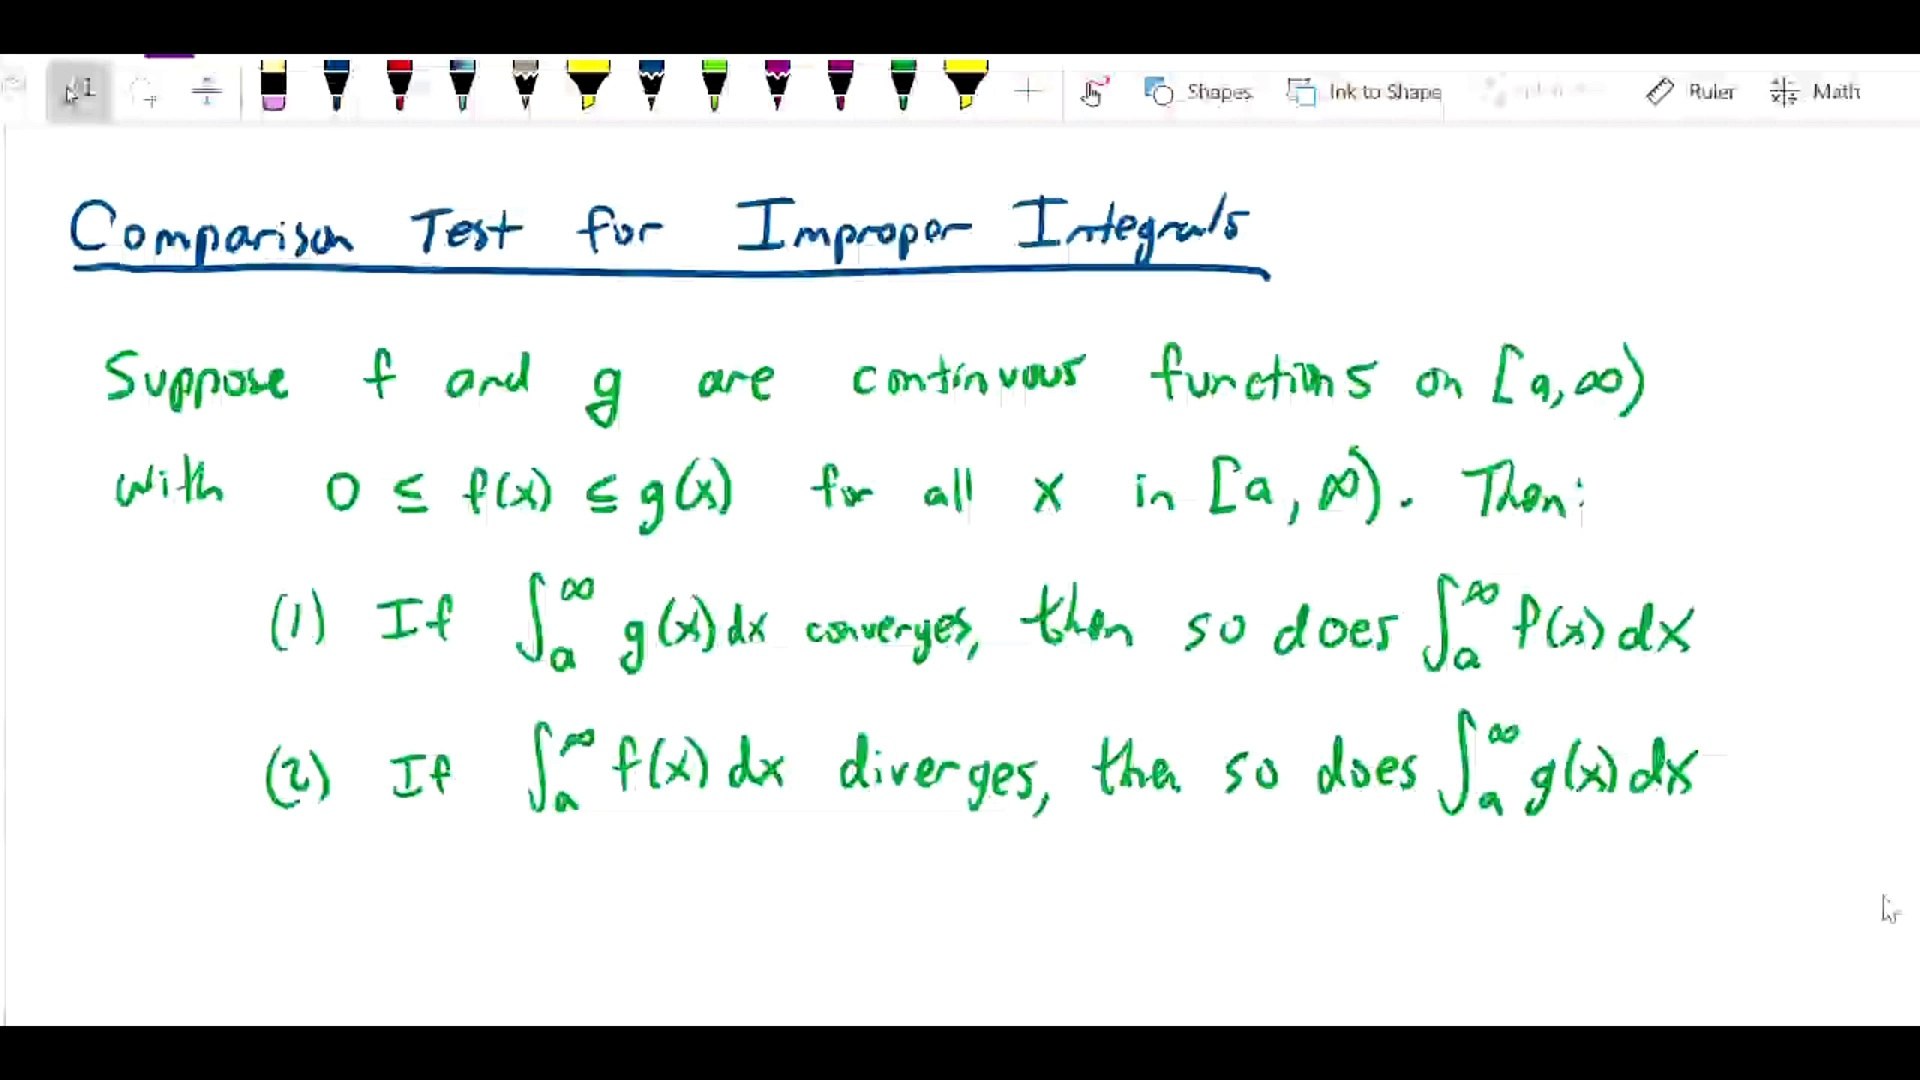 Shapes Ink to Shape Ruler Math
Comparison Test for Improper Integrals
Suppose f and g are continuous functions on [a, ∞)
with 0 ≤ f(x) ≤ g(x) for all x in [a, ∞). Then:
(1) If ∫_a^∞ g(x) dx converges, then so does ∫_a^∞ f(x) dx
(2) If ∫_a^∞ f(x) dx diverges, then so does ∫_a^∞ g(x) dx